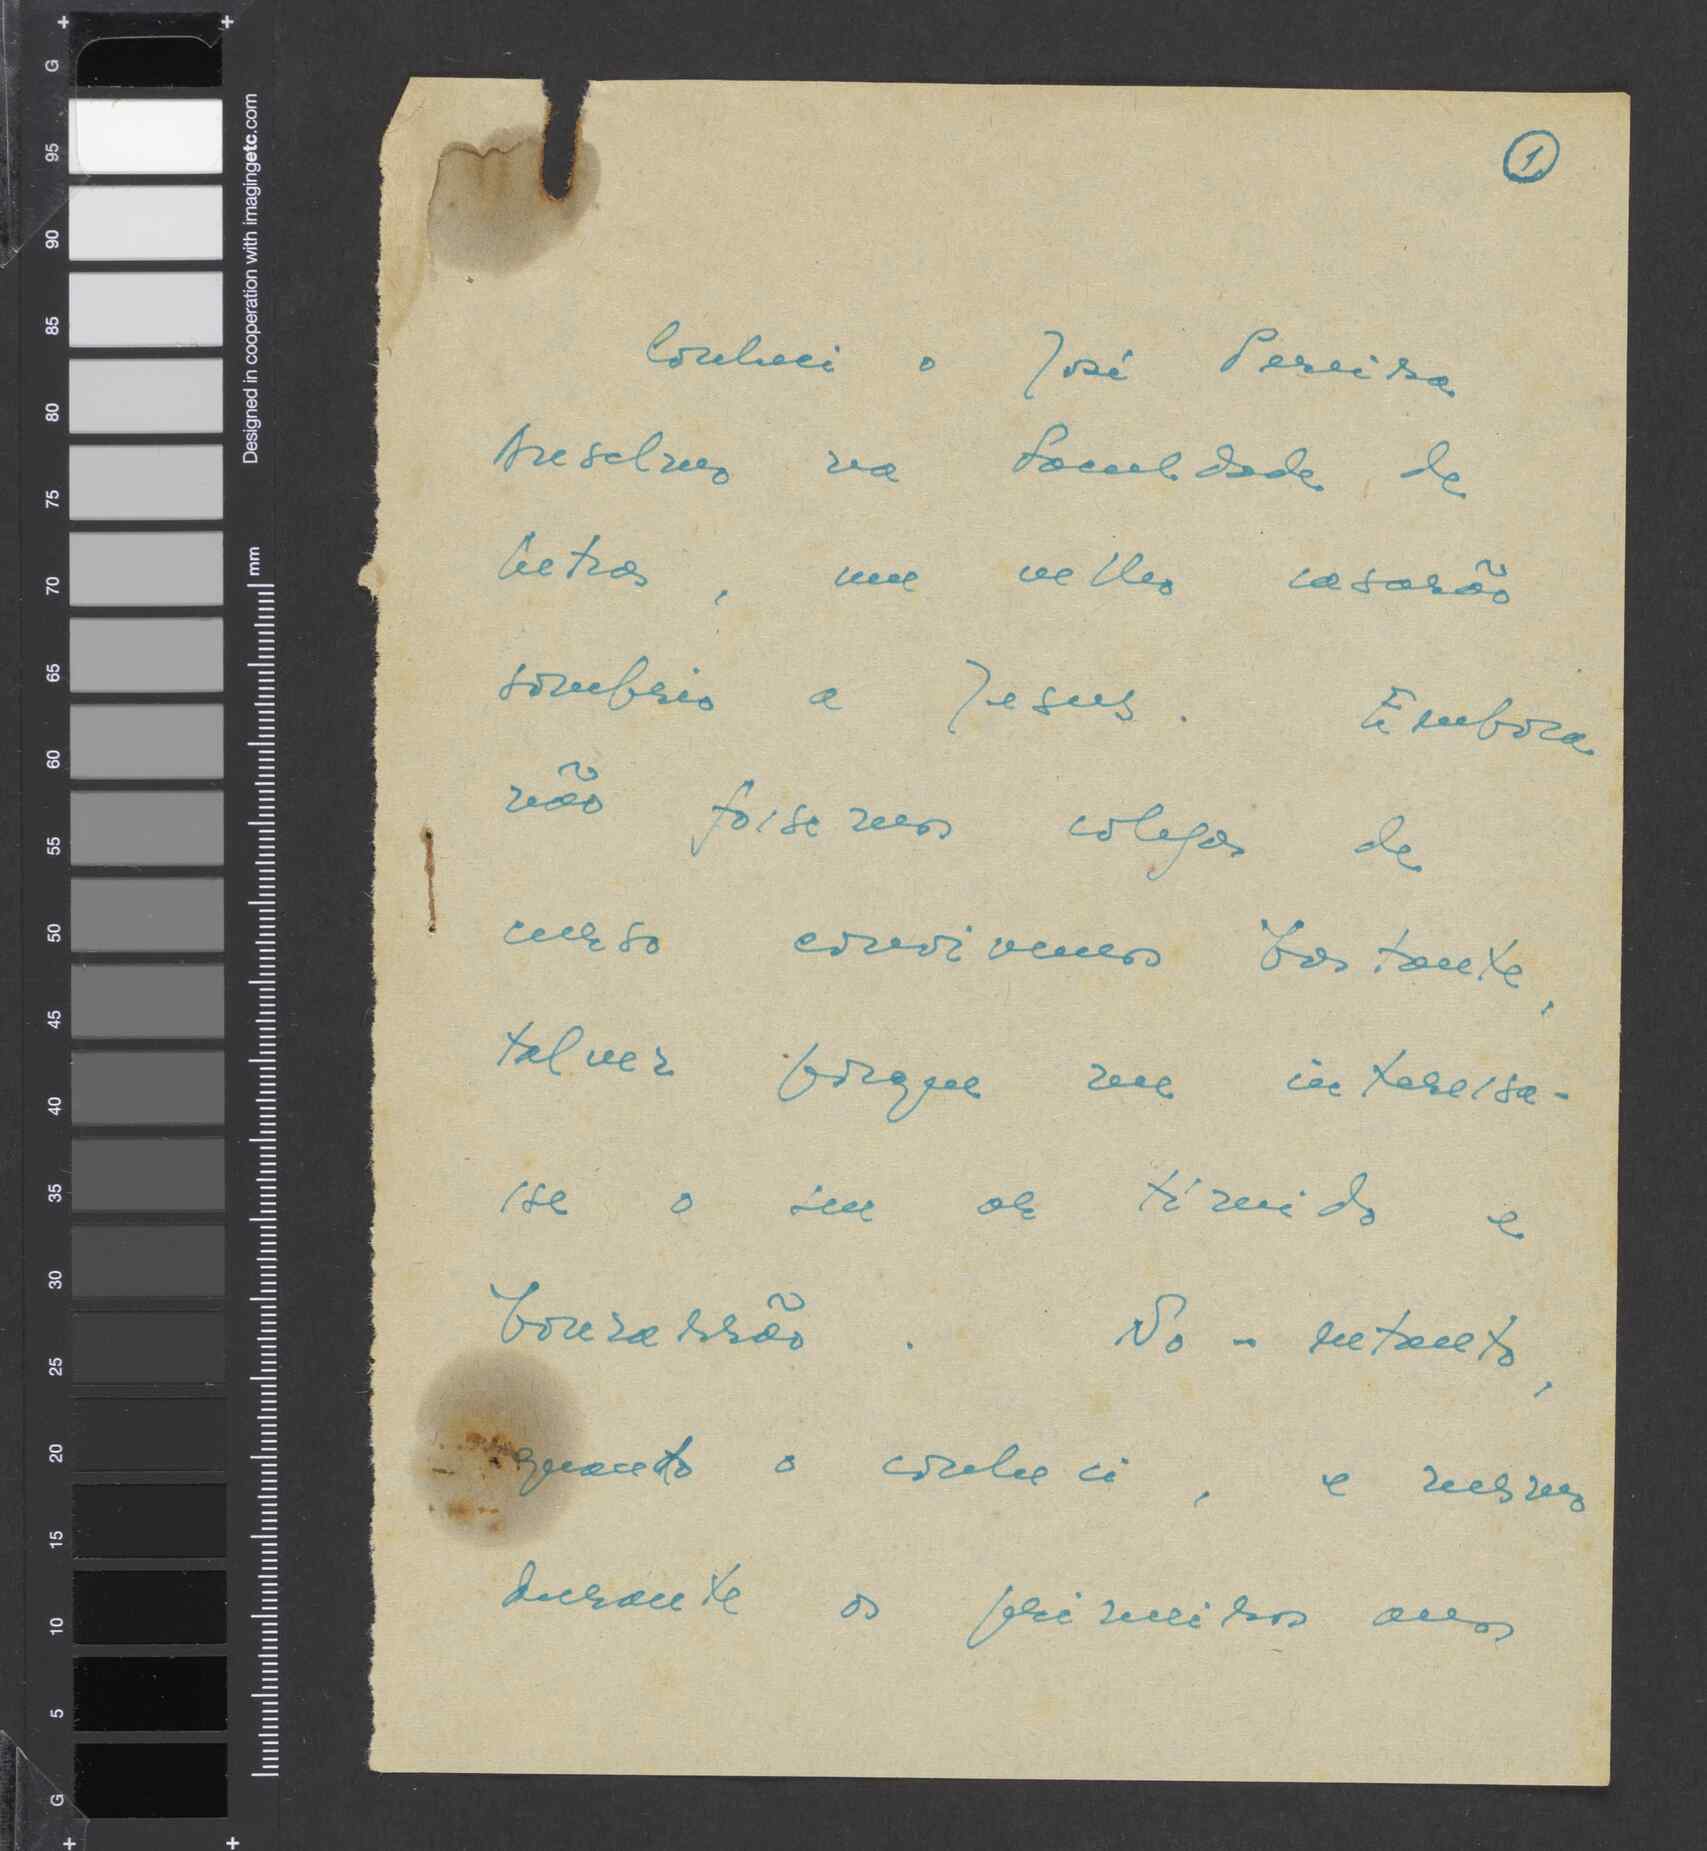 1
Conheci o José Pereira
Anselmo na Faculdade de
Letras, um velho casarão
sombrio a Jesus. Embora
não fossemos colegas de
curso convivemos bastante,
talvez porque me interessa-
sse o seu ar tímido e
bonzarrão. No-entanto,
quando o conheci, e mesmo
durante os primeiros anos
G
95
90
85
80
75
70
65
60
55
50
45
40
35
30
25
20
15
10
5
G
Designed in cooperation with imagingetc.com
mm